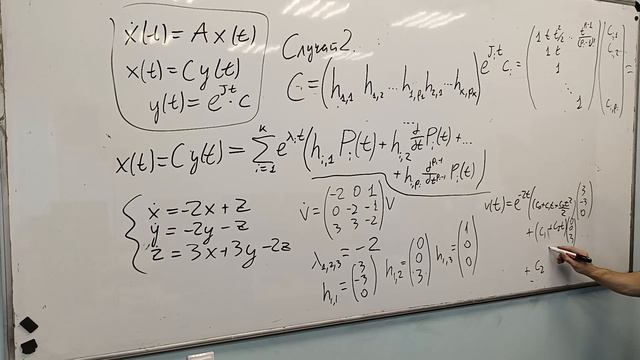 ẋ(t) = A x(t)
x(t) = C y(t)
y(t) = e^{Jt} · c
Случай 2.
C = (h_{1,1} h_{1,2} ... h_{1,p_1} h_{2,1} ... h_{k,p_k})
e^{J_i t} c_i =
1 t t²/2 ...
1 t
1
1
c_{i,1}
c_{i,2}
c_{i,p_i}
=
x(t) = C y(t) = ∑_{i=1}^{k} e^{λ_i t} (h_{i,1} P_i(t) + h_{i,2} d/dt P_i(t) + ...
+ h_{i,p_i} d^{p_i-1}/dt^{p_i-1} P_i(t))
ẋ = -2x + z
ẏ = -2y - z
ż = 3x + 3y - 2z
v̇ = (-2 0 1
0 -2 -1
3 3 -2) v
λ_{1,2,3} = -2
h_{1,1} = (3
-3
0)
h_{1,2} = (0
0
3)
h_{1,3} = (1
0
0)
v(t) = e^{-2t} ((c_0 + c_1 t + c_2 t²/2) (3
-3
0)
+ (c_1 + c_2 t) (0
0
3)
+ c_2